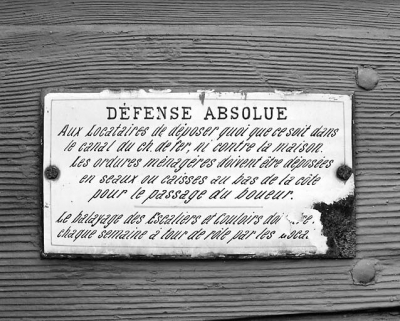 DÉFENSE ABSOLUE
Aux Locataires de déposer quoi que ce soit dans
le canal du ch. de fer, ni contre la maison.
Les ordures ménagères doivent être déposées
en seaux ou caisses au bas de la côte
pour le passage du boueur.
Le balayage des Escaliers et Couloirs doi re
chaque semaine à tour de rôle par les